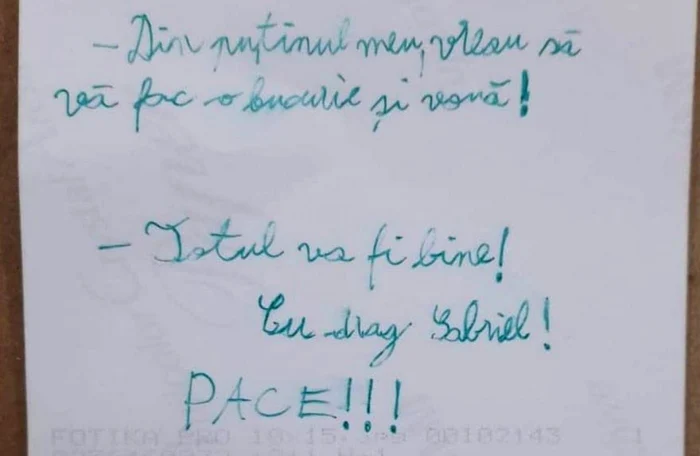 - Din puținul meu, vreau să
vă fac o bucurie și vouă!
- Totul va fi bine!
Cu drag Gabriel!
PACE!!!
FOTIKA PRO
00102143